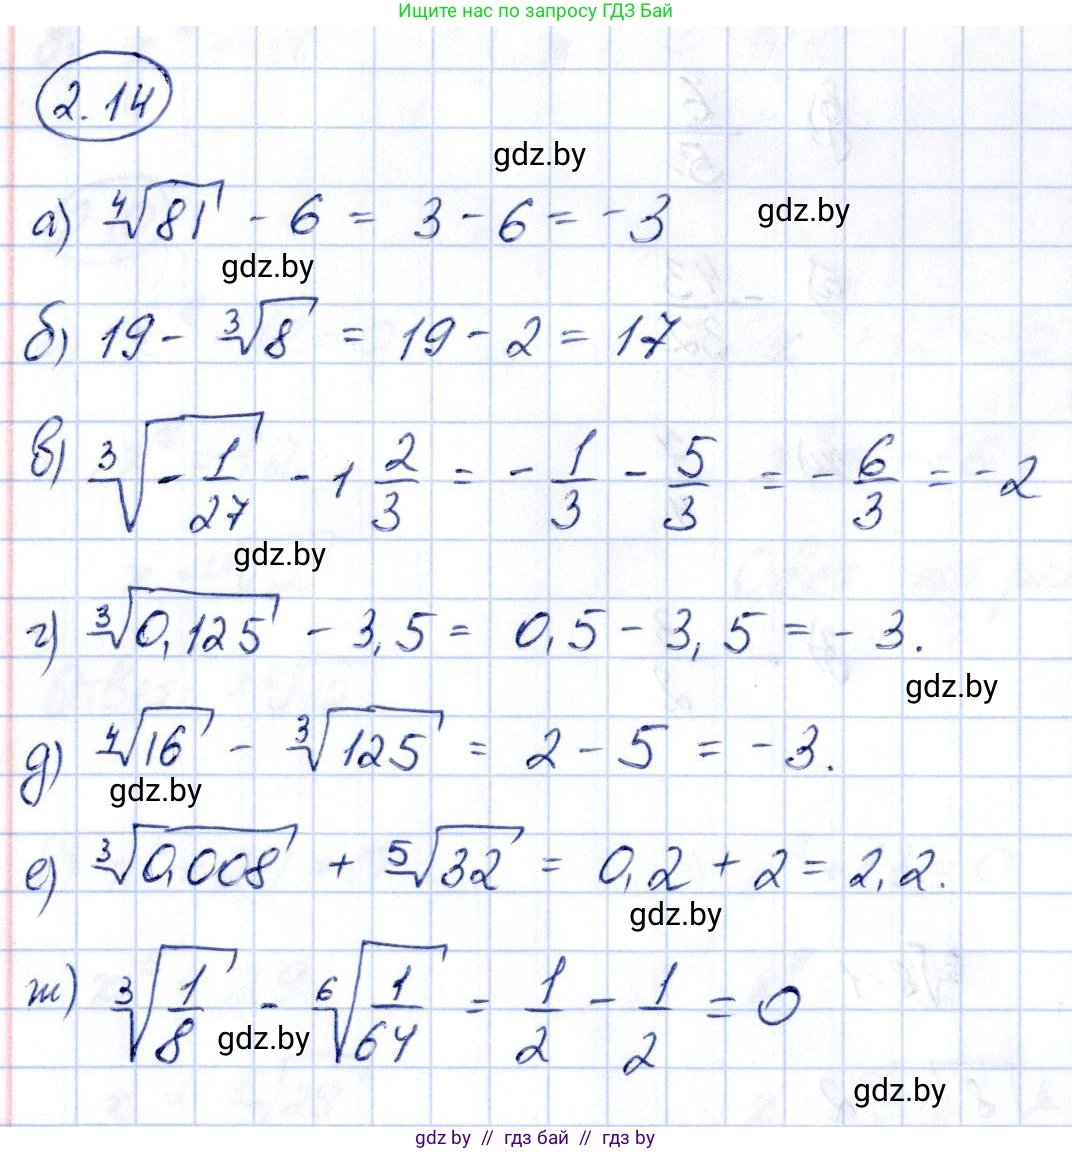 Ищите нас по запросу ГДЗ Бай
2.14
gdz.by
а) ∜81 - 6 = 3 - 6 = -3
gdz.by
gdz.by
б) 19 - ∛8 = 19 - 2 = 17
в) ∛(-1/27) - 1 2/3 = -1/3 - 5/3 = -6/3 = -2
gdz.by
г) ∛0,125 - 3,5 = 0,5 - 3,5 = -3.
gdz.by
д) ∜16 - ∛125 = 2 - 5 = -3.
gdz.by
е) ∛0,008 + ⁵√32 = 0,2 + 2 = 2,2.
gdz.by
ж) ∛(1/8) - ⁶√(1/64) = 1/2 - 1/2 = 0
gdz.by
gdz.by
gdz by // гдз бай // gdz by